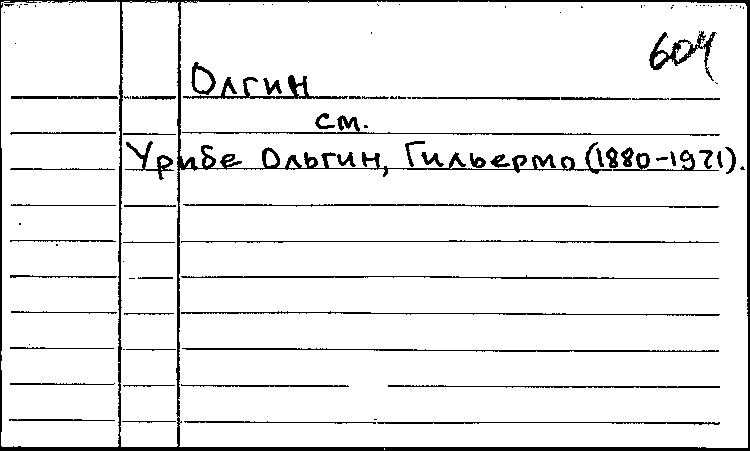 604
Олгин
см.
Урибе Ольгин, Гильермо (1880-1971).